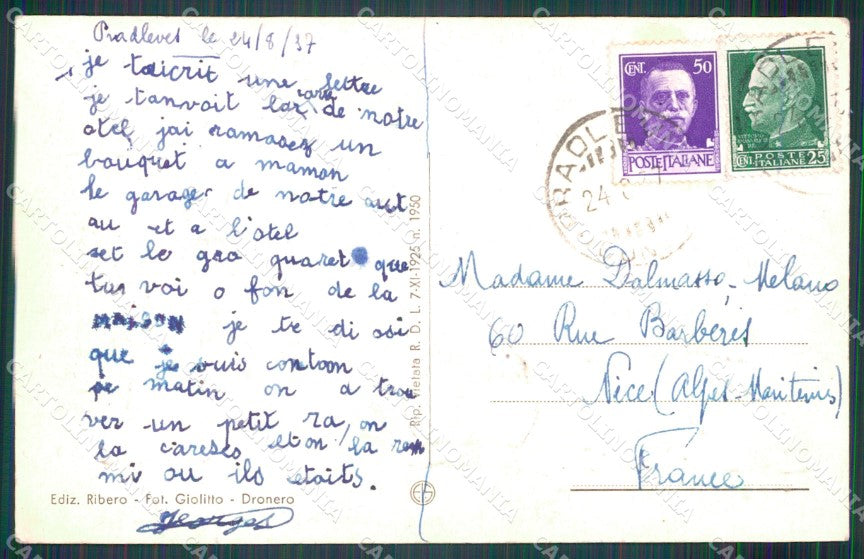 Pradleves le 24/8/37
je taicrit une lettre
je tanvoit lar carte de notre
otel jai ramasez un
bouquet a mamon
le garage de notre aut
au et a l'otel
set le gro quaret que
tus voi o fon de la
maison je te di osi
que je suis contoon
se matin on a trou
ver un petit ra, on
la careses et on la rem
mi ou ilo etaits.
Georges
Ediz. Ribero - Fot. Giolitto - Dronero
Rip. vietata R. D. L. 7-XI-1925 n. 1950
CENT. 50
POSTE ITALIANE
POSTE ITALIANE
CENT. 25
PRADLE
24
Madame Dalmasso-Melano
60 Rue Barbéris
Nice (Alpes-Maritimes)
France
CARTOLINOMANIA